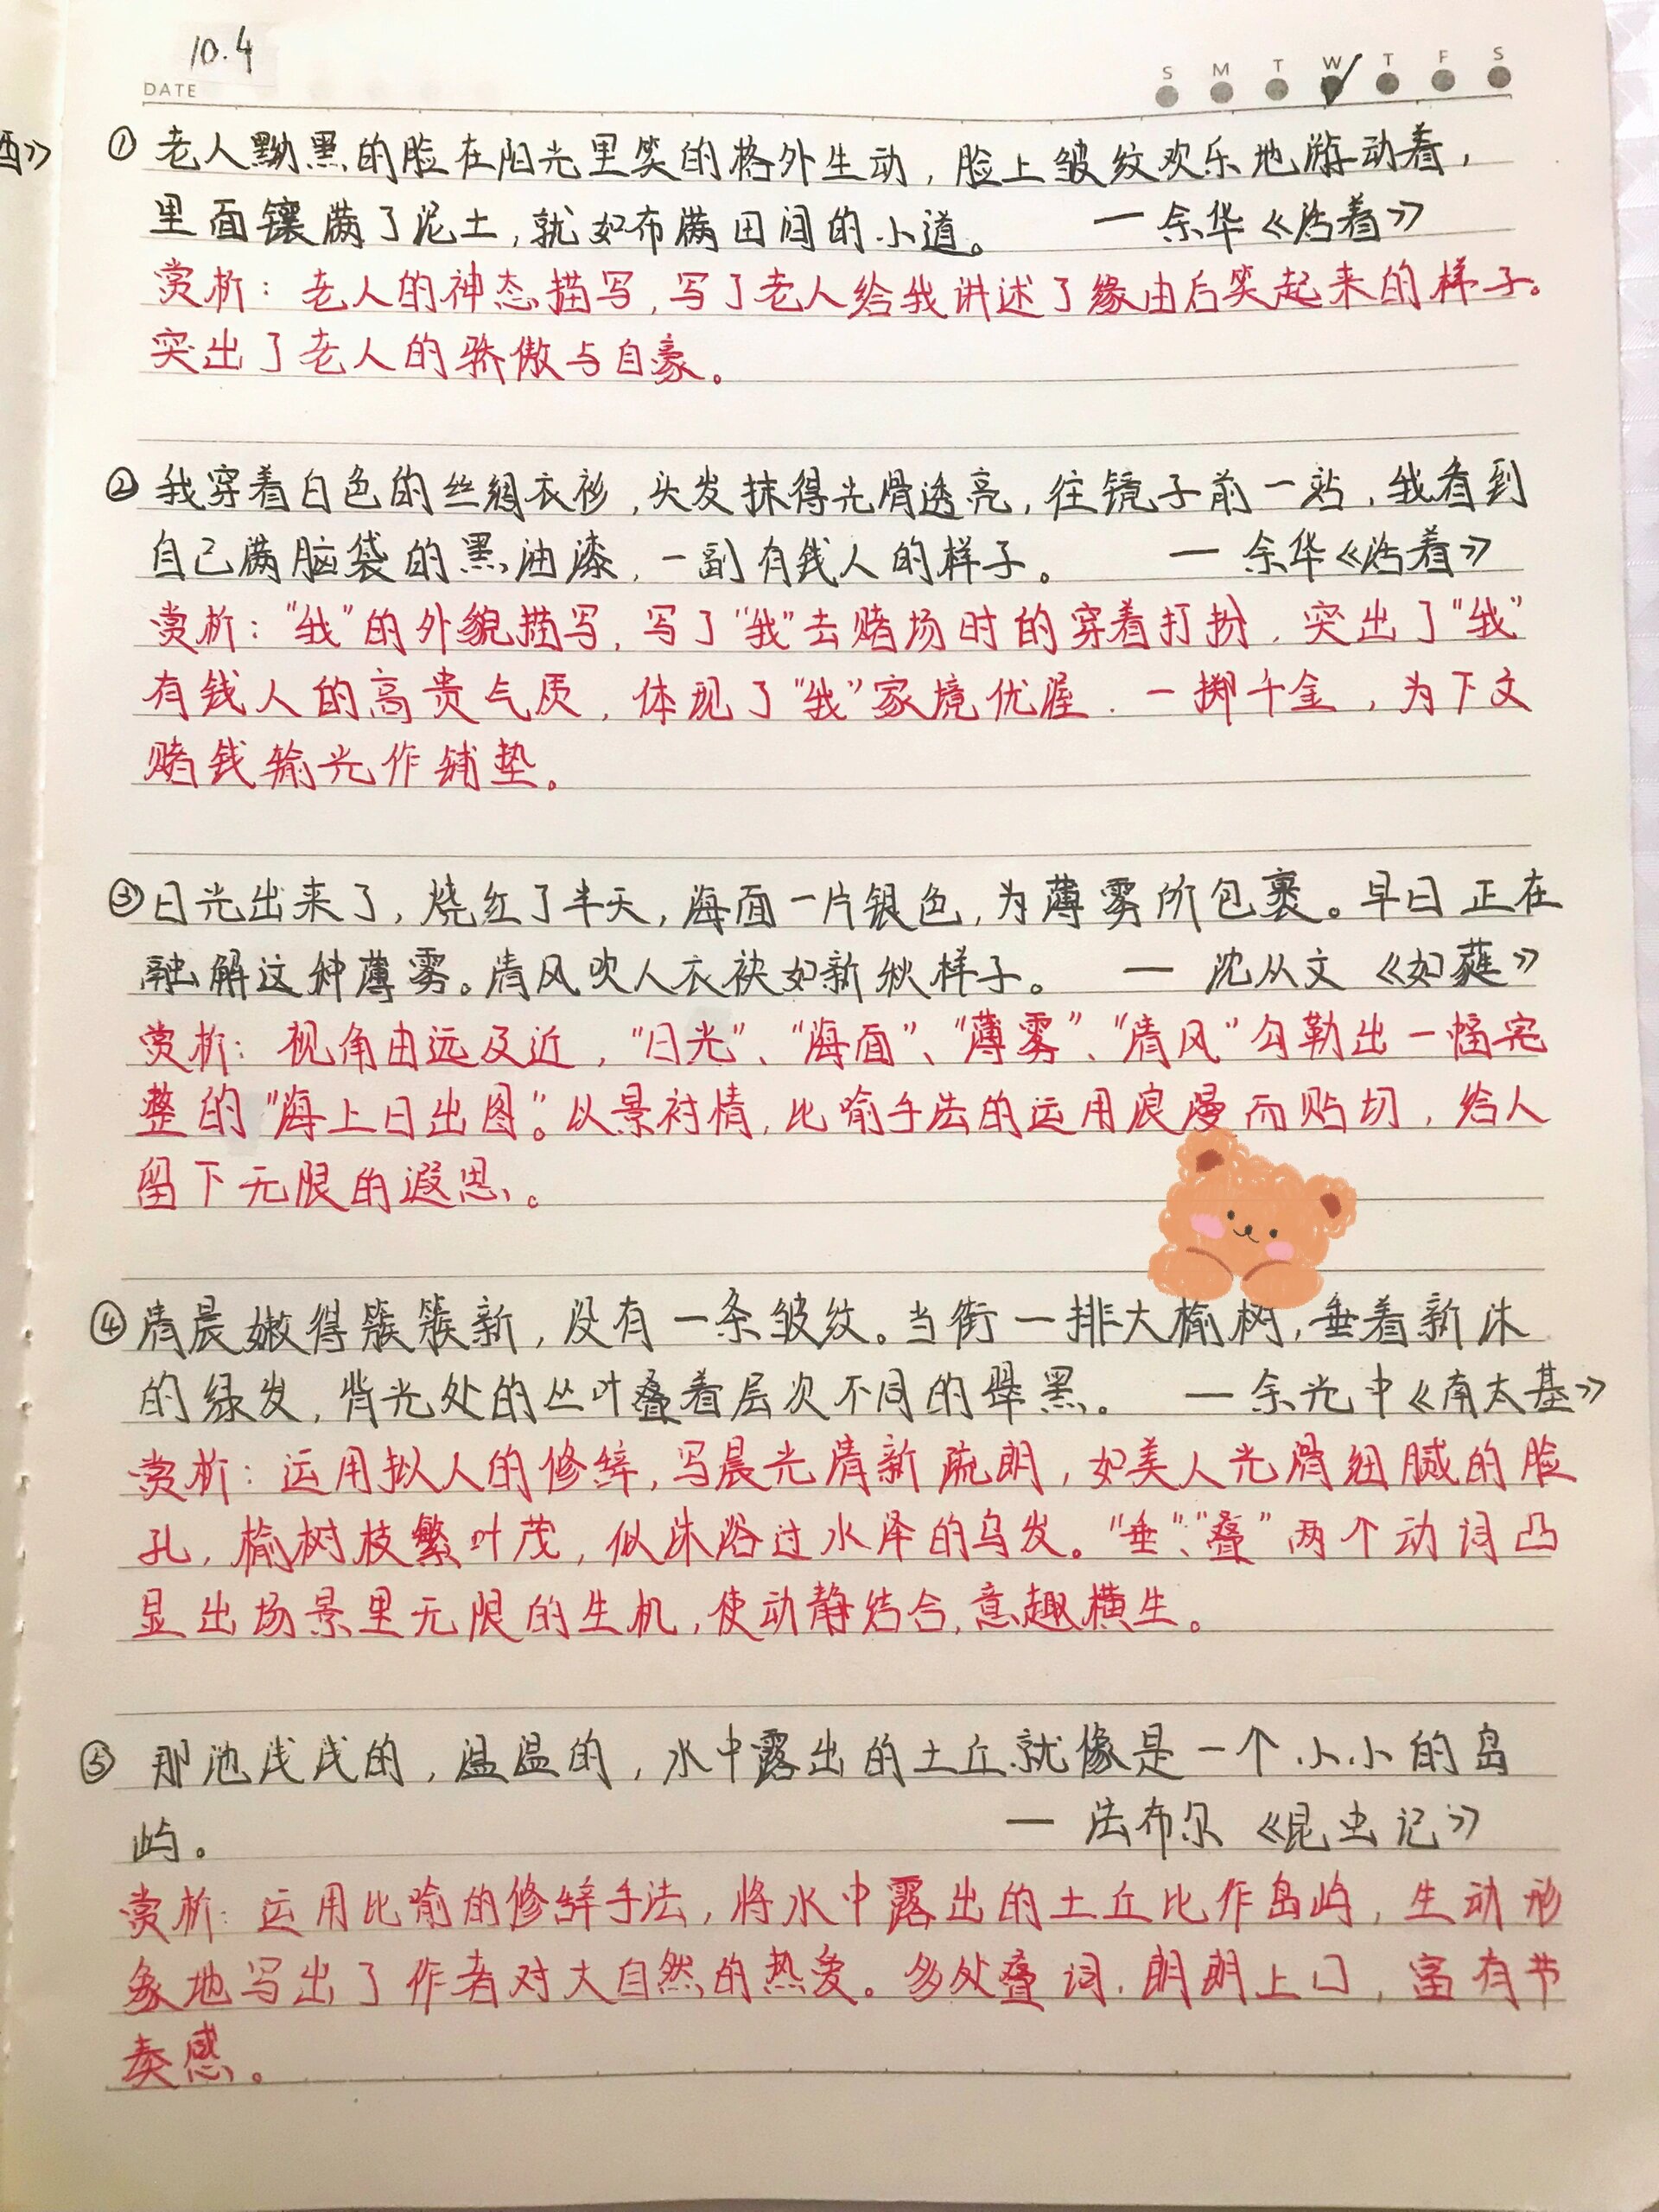 10.4
DATE
S M T W T F S
①老人黝黑的脸在阳光里笑的格外生动，脸上皱纹欢乐地游动着，
里面镶满了泥土，就如布满田间的小道。 — 余华《活着》
赏析：老人的神态描写，写了老人给我讲述了缘由后笑起来的样子。
突出了老人的骄傲与自豪。
②我穿着白色的丝绸衣衫，头发抹得光滑透亮，往镜子前一站，我看到
自己满脑袋的黑油漆，一副有钱人的样子。 — 余华《活着》
赏析："我"的外貌描写，写了"我"去赌场时的穿着打扮，突出了"我"
有钱人的高贵气质，体现了"我"家境优渥，一掷千金，为下文
赌钱输光作铺垫。
③日光出来了，烧红了半天，海面一片银色，为薄雾所包裹。早日正在
融解这种薄雾。清风吹人衣袂如新秋样子。 — 沈从文《如蕤》
赏析：视角由远及近，"日光"、"海面"、"薄雾"、"清风"勾勒出一幅完
整的"海上日出图"。以景衬情，比喻手法的运用浪漫而贴切，给人
留下无限的遐思。
④清晨嫩得簇簇新，没有一条皱纹。当街一排大榆树，垂着新沐
的绿发，背光处的丛叶叠着层次不同的翠黑。 — 余光中《南太基》
赏析：运用拟人的修辞，写晨光清新疏朗，如美人光滑细腻的脸
孔，榆树枝繁叶茂，似沐浴过水泽的乌发。"垂"、"叠"两个动词凸
显出场景里无限的生机，使动静结合，意趣横生。
⑤那池浅浅的，温温的，水中露出的土丘就像是一个小小的岛
屿。 — 法布尔《昆虫记》
赏析：运用比喻的修辞手法，将水中露出的土丘比作岛屿，生动形
象地写出了作者对大自然的热爱。多处叠词，朗朗上口，富有节
奏感。